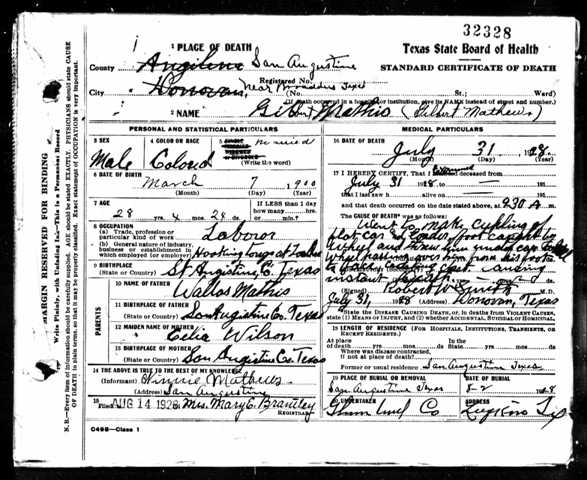 32328
1 PLACE OF DEATH
Texas State Board of Health
County Angelina San Augustine
STANDARD CERTIFICATE OF DEATH
Registered No.
City Donovan, near Broaddus Texas (No. St.; Ward)
(If death occurred in a hospital or institution, give its NAME instead of street and number.)
2 NAME Gilbert Mathis (Gilbert Mathews)
PERSONAL AND STATISTICAL PARTICULARS
3 SEX
Male
4 COLOR OR RACE
Colored
5
married
(Write the word)
6 DATE OF BIRTH
March 7 1900
(Month) (Day) (Year)
7 AGE
28 yrs. 4 mos. 24 ds.
If LESS than 1 day
how many hrs.
or min.
8 OCCUPATION
(a) Trade, profession or
particular kind of work Laborer
(b) General nature of industry,
business or establishment in
which employed (or employer)
9 BIRTHPLACE
(State or Country) St. Augustine Co. Texas
PARENTS
10 NAME OF FATHER
Mathis
11 BIRTHPLACE OF FATHER
(State or Country) San Augustine Co. Texas
12 MAIDEN NAME OF MOTHER
Celia Wilson
13 BIRTHPLACE OF MOTHER
(State or Country) San Augustine Co. Texas
14 THE ABOVE IS TRUE TO THE BEST OF MY KNOWLEDGE
(Informant) Minnie Mathews
(Address) San Augustine
15
Filed AUG 14 1928 Mrs. Mary C. Brantley
REGISTRAR
MEDICAL PARTICULARS
16 DATE OF DEATH
July 31 1928
(Month) (Day) (Year)
17 I HEREBY CERTIFY, That I deceased from
July 31 1928, to 191
that I last saw h alive on 191
and that death occurred on the date stated above, at 930 A m.
The CAUSE OF DEATH* was as follows:
Went to make coupling of
flat car & loader foot caught by
wheel and threw him under car
wheel passing over him from his foots
to chest. causing
instant
(Signed) Robert W. M.D.
July 31, 1928 (Address) Donovan, Texas
*State the DISEASE CAUSING DEATH, or, in deaths from VIOLENT CAUSES, state (1) MEANS OF INJURY, and (2) whether ACCIDENTAL, SUICIDAL, or HOMICIDAL.
18 LENGTH OF RESIDENCE (FOR HOSPITALS, INSTITUTIONS, TRANSIENTS, OR RECENT RESIDENTS.)
At place In the
of death yrs. mos. ds. State yrs. mos. ds.
Where was disease contracted,
if not at place of death?
Former or usual residence San Augustine Texas
19 PLACE OF BURIAL OR REMOVAL
San Augustine Texas
DATE OF BURIAL
8-2 1928
20 UNDERTAKER
Co
ADDRESS
Lufkin Tex
C49B—Class 1
MARGIN RESERVED FOR BINDING
Write Plainly, with Unfading Ink—This is a Permanent Record
N. B.—Every item of information should be carefully supplied. AGE should be stated EXACTLY. PHYSICIANS should state CAUSE
OF DEATH in plain terms, so that it may be properly classified. Exact statement of OCCUPATION is very important.